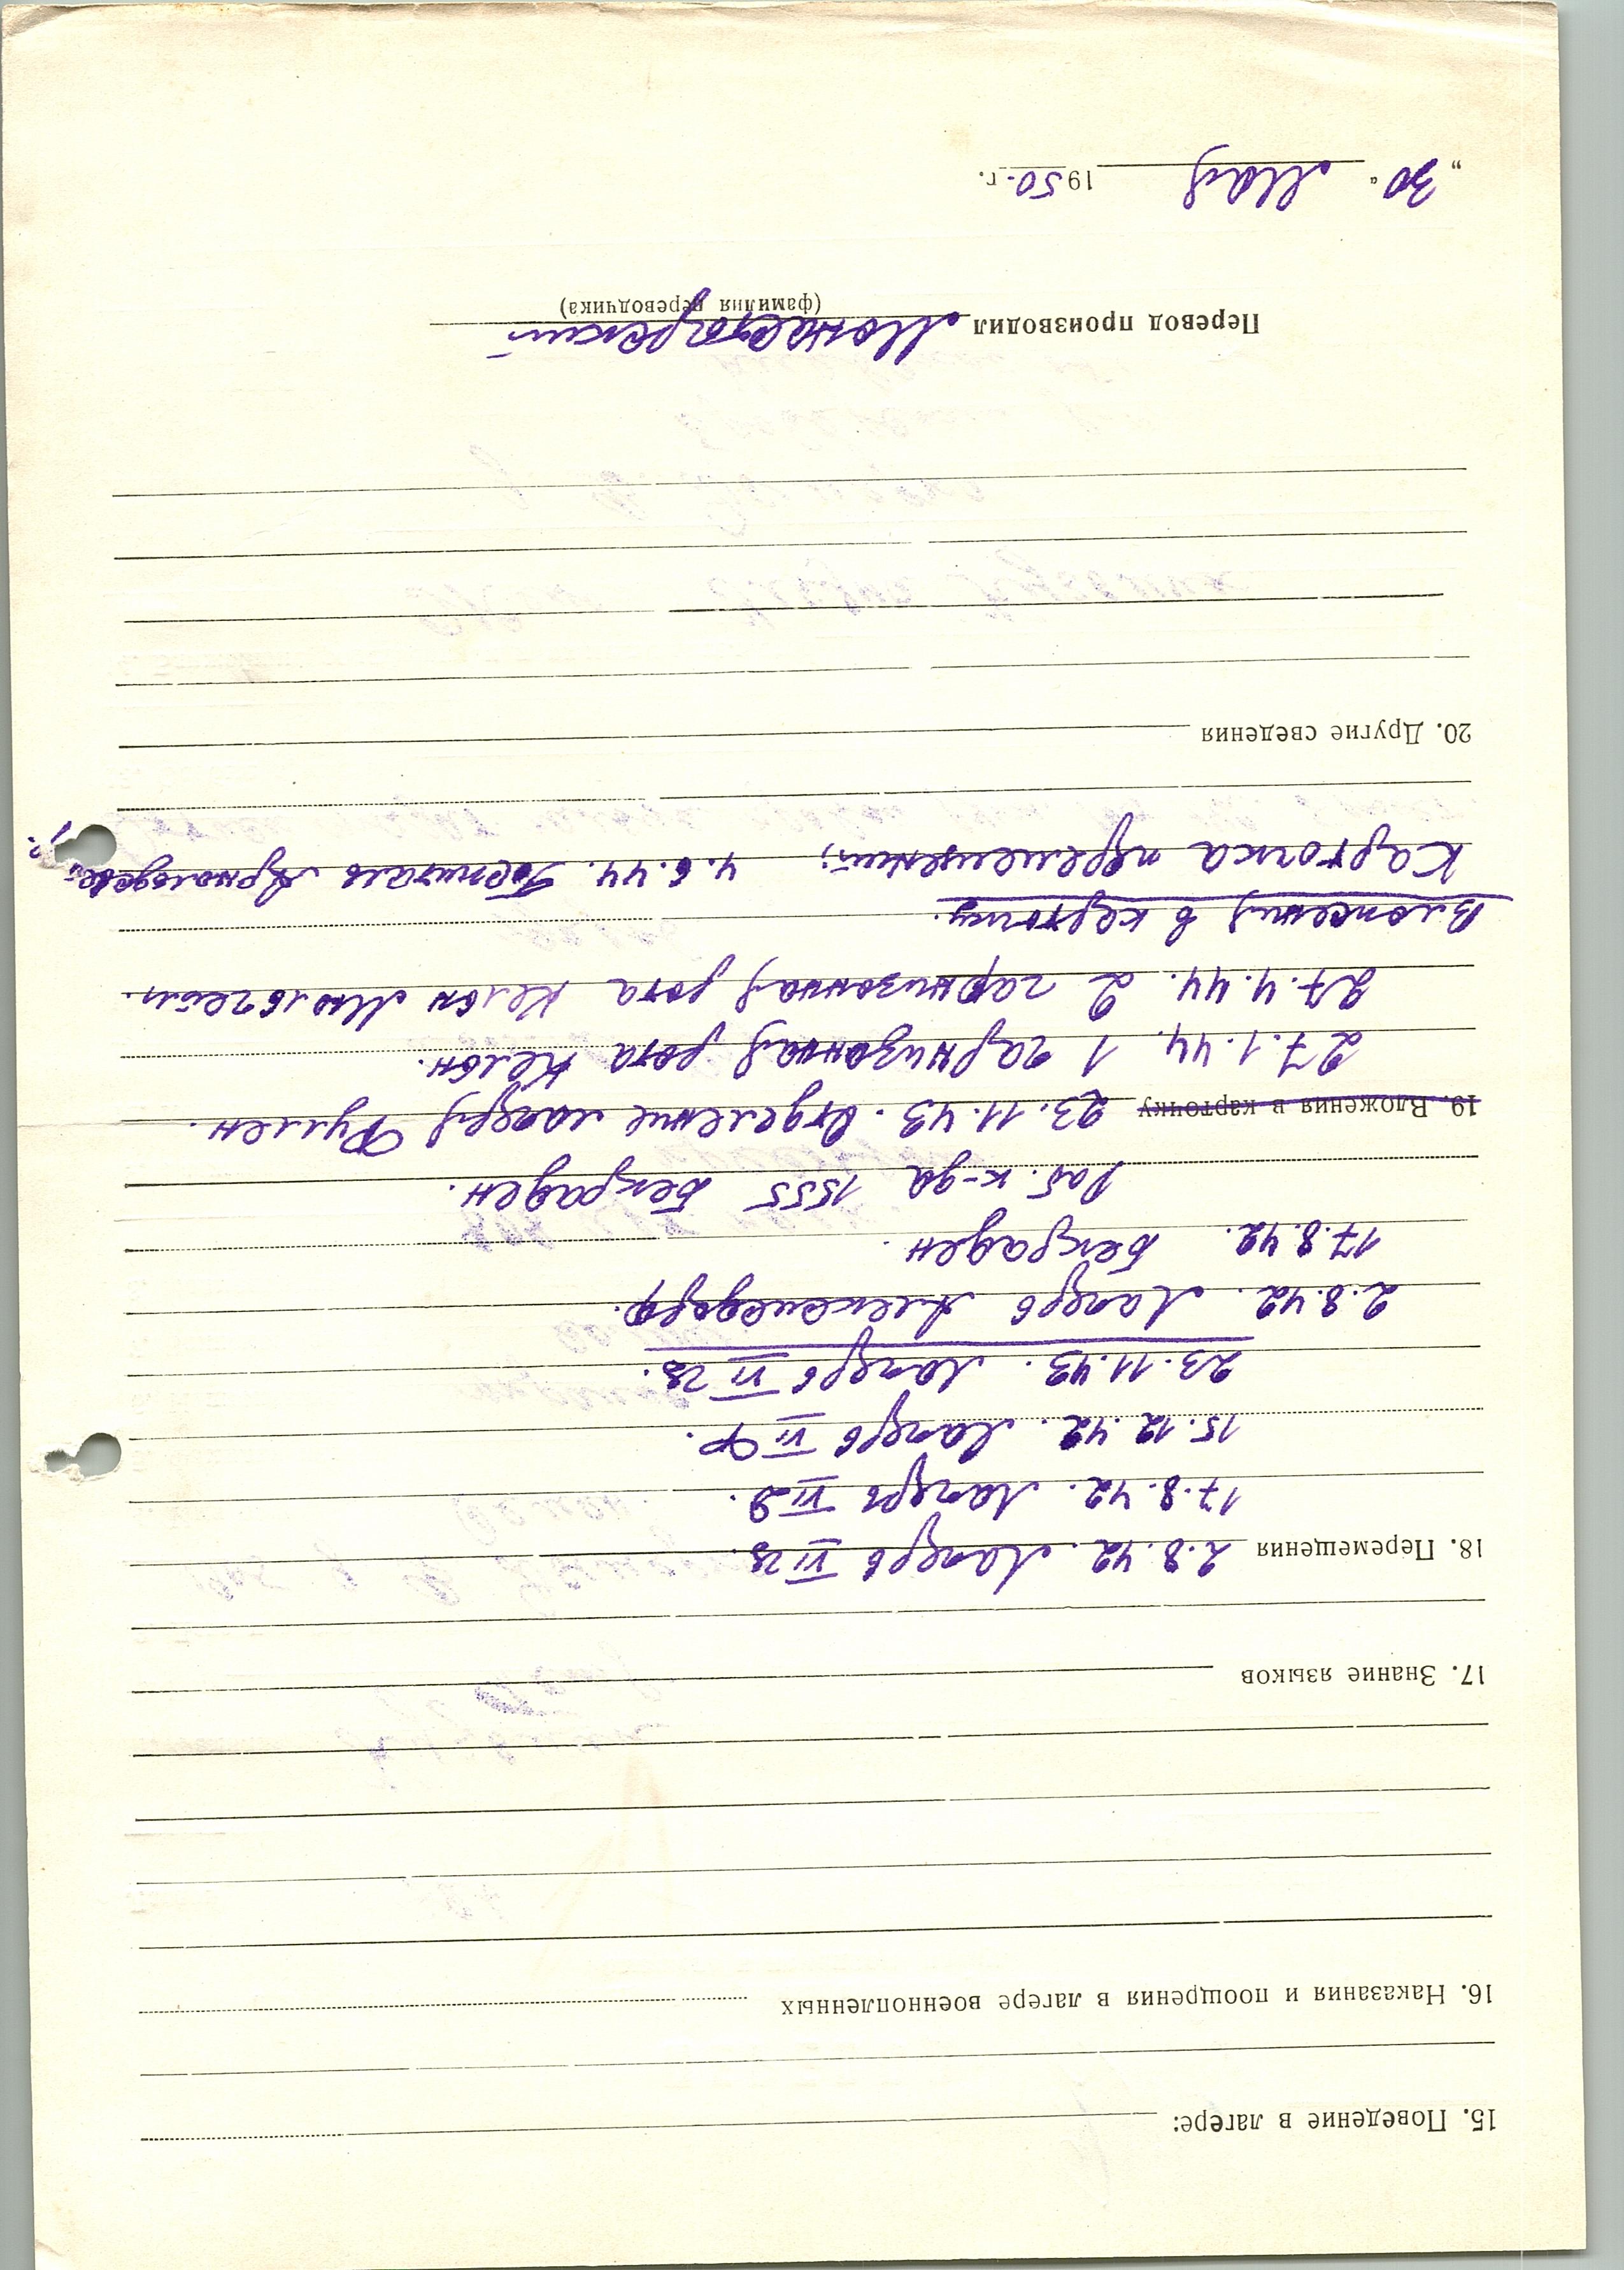 15. Поведение в лагере:
16. Наказания и поощрения в лагере военнопленных
17. Знание языков
18. Перемещения 2.8.42. Лагерь VI В.
17.8.42. Лагерь VI Д.
15.12.42. Лагерь VI Ф.
23.11.43. Лагерь VI В.
2.8.42. Лагерь Алексисдорф.
17.8.42. Бекраден.
Раб. к-да 1555 Бекраден.
19. Вложения в карточку 23.11.43. Отделение лагеря Фуллен.
27.1.44. 1 гарнизонная рота Кельн.
27.4.44. 2 гарнизонная рота Кельн Мюльгейм.
Вложения в карточку.
Карточка перемещений: 4.6.44. Госпиталь
20. Другие сведения
Перевод производил Монастырский
(фамилия переводчика)
„30“ Мая 1950 г.